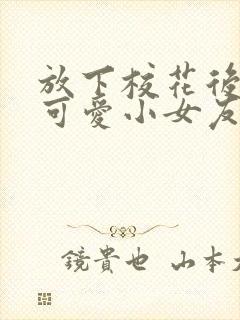 放下校花後
可愛小女友
鏡貴也 山本